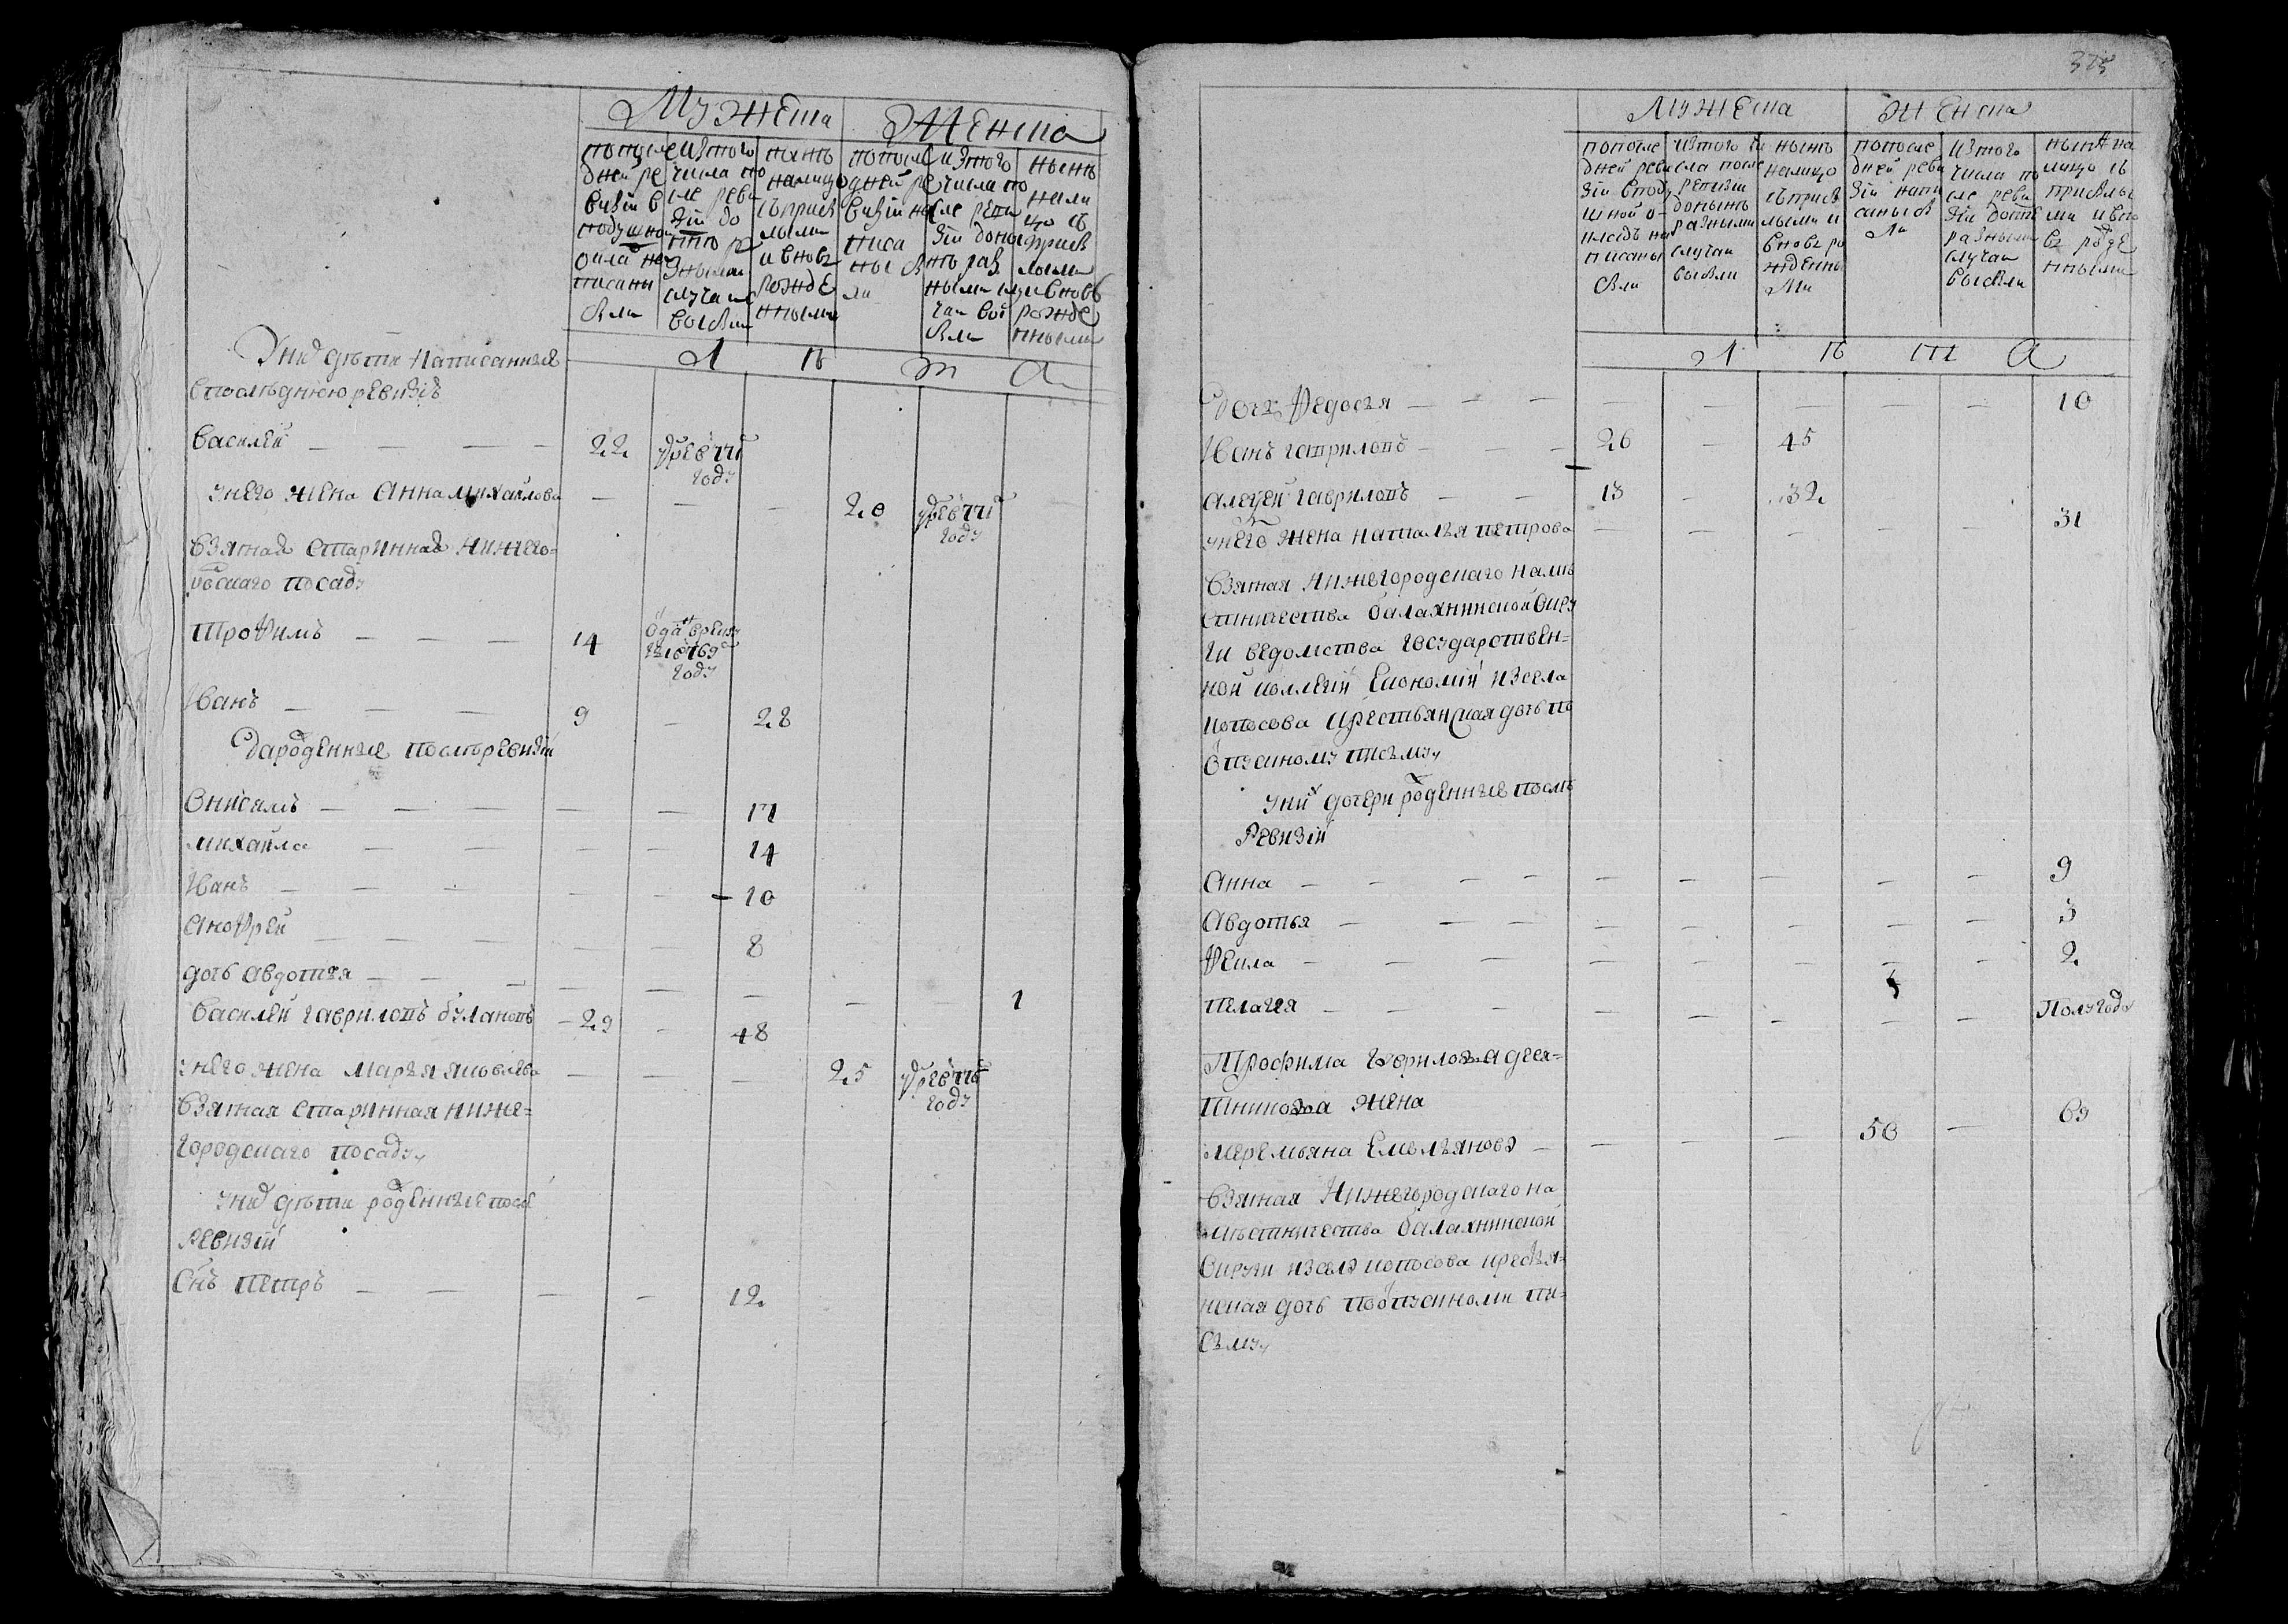 Мужеска Женска
попоследней ревизіи в подушной окладъ написаны были
изтого числа после ревизіи до нынѣ разными случаи выбыли
нынѣ налицо съприбылыми ивновь рожденными
попоследней ревизіи написаны были
изтого числа после ревизіи донынѣ разными случаи выбыли
нынѣ налицо съ прибылыми ивновь рожденными
Л ѣ т а
Унихъ дѣти написанные
впослѣднюю ревизію
Василей — — — — 22 умре в 771 году
унего жена Анна михаилова — — — 20 умре в 771 году
взятая старинная нижего-
родскаго посаду
Трофимъ — — — 14 году
Иванъ — — — 9 — 28
Да рожденные послѣ ревизіи
Онисимъ — — — — — 17
михаила — — — — 14
Иванъ — — — — — 10
Анофрей — — — — — 8
дочь авдотья — — — — — — — — 1
Василей Гавриловъ булановъ — 29 — 48
унего жена Марья яковлева — — — 25 умре в 776 году
взятая старинная ниже-
городскаго посаду
унихъ дѣти рожденные после
Ревизіи
Сынъ петръ — — — — 12
375
Мужеска Женска
попоследней ревизіи вподушной окладъ написаны были
изтого числа после ревизіи донынѣ разными случаи выбыли
нынѣ налицо съприбылыми и вновь рожденными
попоследней ревизіи написаны были
изтого числа после ревизіи донынѣ разными случаи выбыли
нынѣ налицо съ прибылыми ивновь рожденными
Л ѣ т а
Дочь Федосья — — — — — — — — 10
Иванъ гавриловъ — — — 26 — 45
Алексей гавриловъ — — 13 — 32
унего жена наталья петрова — — — — — 31
взятая нижегородскаго намѣ
стничества балахнинской окру
ги ведомства государствен-
ной коллегіи Економіи изсела
копосова крестьянская дочь по
отпускному письму
унихъ дочери рожденные послѣ
Ревизіи
Анна — — — — — — — — — 9
Авдотья — — — — — — — — 3
Фекла — — — — — — — — 2
пелагея — — — — — — — — Полугоду
Трофима Гаврилова деся-
тникова жена
меремьяна Емельянова — — — — 50 — 69
взятая Нижегородскаго на
мѣстничества балахнинской
Округи изсела копосова крестья-
нская дочь поотпускному пи-
сьму